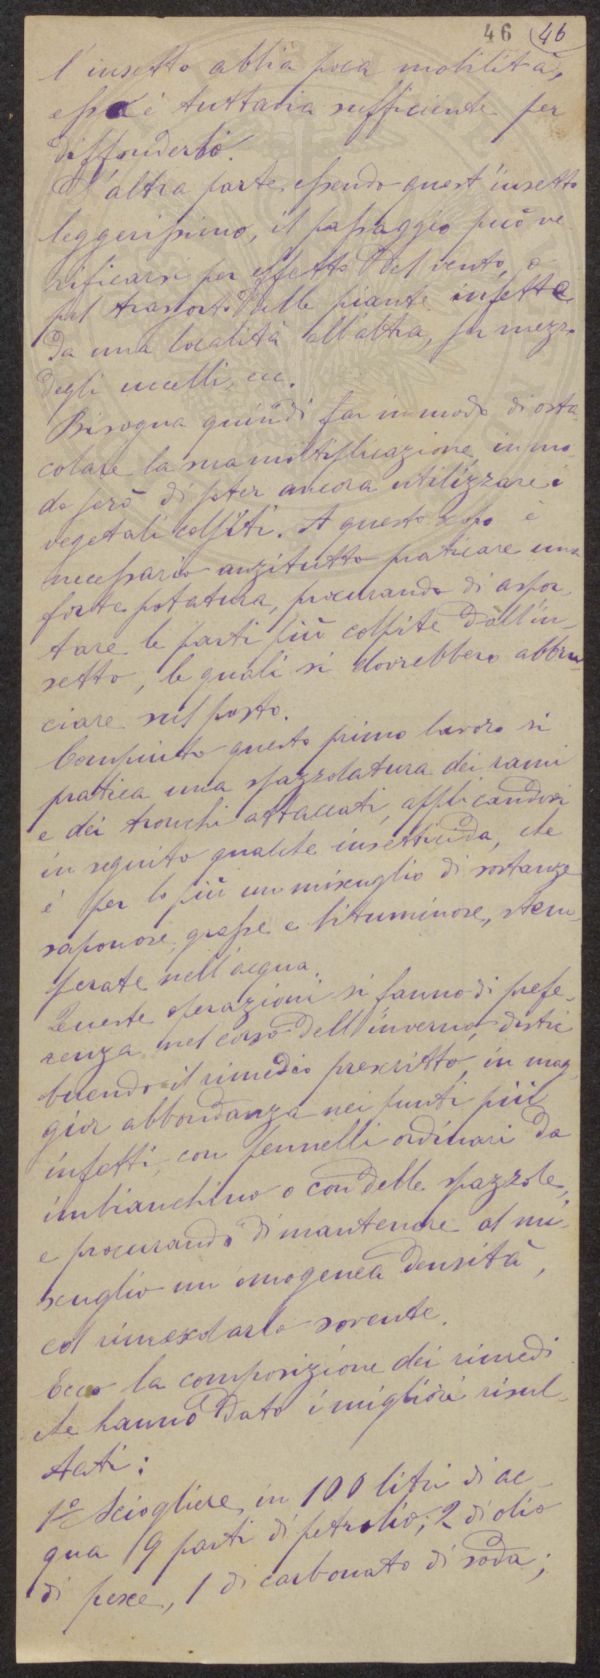 46 46
l'insetto abbia poca mobilità,
essa è tuttavia sufficiente per
diffonderlo.
D'altra parte, essendo quest'insetto
leggerissimo, il passaggio può ve
rificarsi per effetto del vento, o
pel trasporto delle piante infette
da una località all'altra, per mezzo
degli uccelli, ecc.
Bisogna quindi far in modo di osta-
colare la sua moltiplicazione, in mo-
do però di poter ancora utilizzare i
vegetali colpiti. A questo scopo è
necessario anzitutto praticare una
forte potatura, procurando di aspor-
tare le parti più colpite dall'in-
setto, le quali si dovrebbero abbru
ciare sul posto.
Compiuto questo primo lavoro si
pratica una spazzolatura dei rami
e dei tronchi attaccati, applicandovi
in seguito qualche insetticida, che
è per lo più un miscuglio di sostanze
saponose, grasse e bituminose, stem-
perate nell'acqua.
Queste operazioni si fanno di prefe-
renza nel corso dell'inverno, distri
buendo il rimedio prescritto, in mag
gior abbondanza nei punti più
infetti, con pennelli ordinari da
imbianchino o con delle spazzole,
e procurando di mantenere al mi-
scuglio un'omogenea densità,
col rimescolarlo sovente.
Ecco la composizione dei rimedi
che hanno dato i migliori risul-
tati:
1° Sciogliere in 100 litri di ac-
qua 9 parti di petrolio; 2 di olio
di pesce, 1 di carbonato di soda;